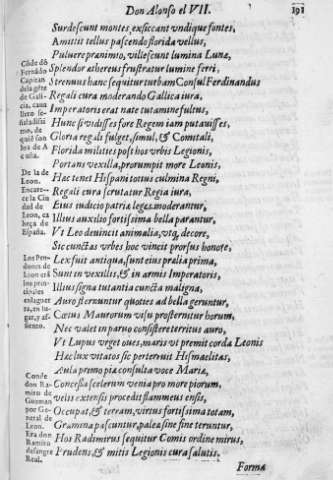 Don Alonso el VII.
191
Surdescunt montes, exsiccant vndique fontes,
Amittit tellus pascendo florida vellus,
Puluere prænimio, vilescunt lumina Lunæ,
Splendor æthereus frustratur lumine ferri,
Strenuus hanc sequitur turbam Consul Ferdinandus
Regali cura moderando Gallica iura,
Imperatoris erat nate tutamine fultus,
Hunc si vidisses fore Regem iam putauisses,
Gloria regali fulget, simul, & Comitali,
Florida milities post hos vrbis Legionis,
Portans vexilla, prorumpit more Leonis,
Hæc tenet Hispani totius culmina Regni,
Regali cura scrutatur Regia iura,
Eius iudicio patria leges moderantur,
Illius auxilio fortissima bella parantur,
Vt Leo deuincit animalia, vtq; decore,
Sic cunctas vrbes hoc vincit prorsus honore,
Lex fuit antiqua, sunt eius prælia prima,
Sunt in vexillis, & in armis Imperatoris,
Illius signa tutantia cuncta maligna,
Auro sternuntur quoties ad bella geruntur,
Cœtus Maurorum visu prosternitur horum,
Nec valet in paruo consistere territus auro,
Vt Lupus vrget oues, maris vt premit corda Leonis
Hac lux vitatos sic perteruit Hismaelitas,
Aula prompia consulta voce Maria,
Concessa scelerum venia pro more piorum,
velis extensis procedit flammeus ensis,
Occupat, & terram, virtus fortissima totam,
Gramina pascuntur, paleæ sine fine teruntur,
Hos Radimirus sequitur Comis ordine mirus,
Prudens, & mitis Legionis cura salutis.
Forma
Cõde dõ
Fernãdo
Capitan
de la gẽte
de Galicia,
De la de
Leon.
Encarece
la Ciudad
de
Leon, cabeça
de
España.
Los Pendones
de
Leon erã
Conde
don Ramiro
de
Guzman
por General
de
Leon.
Era don
Ramiro
de sangre
Real.